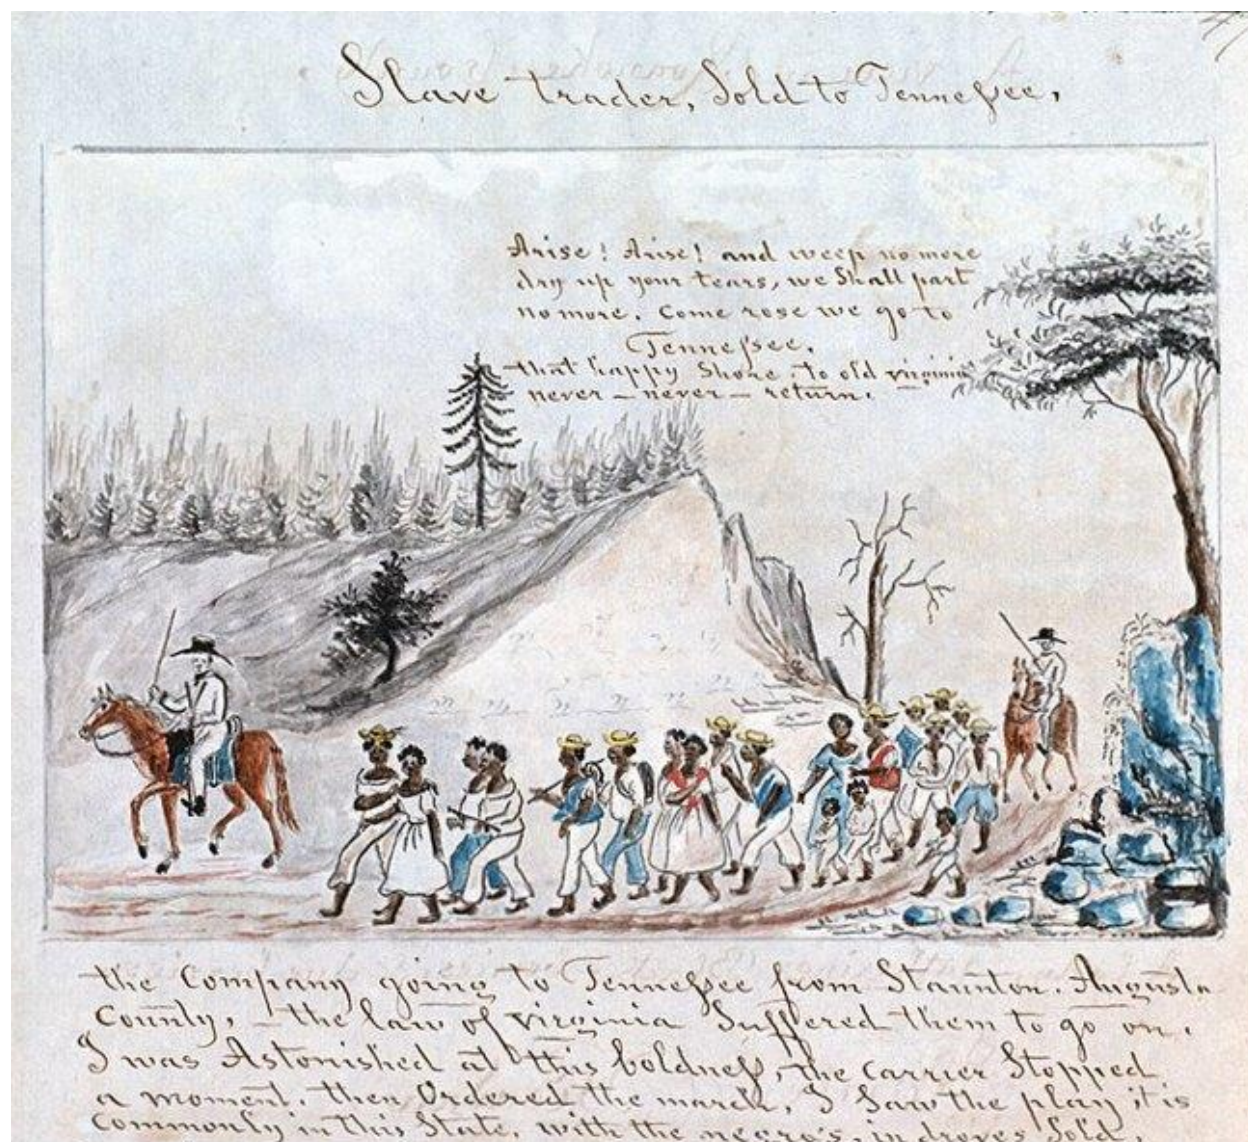 Slave trader, Sold to Tennessee,
Arise! Arise! and weep no more
dry up your tears, we Shall part
no more. Come rose we go to
Tennessee,
that happy Shore. to old virginia
never – never – return.
the Company going to Tennessee from Staunton. Augusta
County, – the law of virginia Suffered them to go on.
I was Astonished at this boldness, the carrier Stopped
a moment. then Ordered the march, I Saw the play it is
Commonly in this State, with the negro's, in droves Sold.